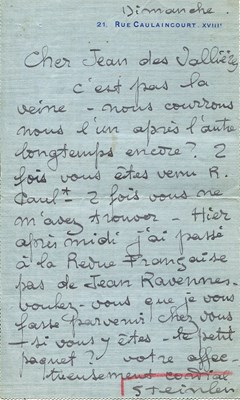 Dimanche
21, RUE CAULAINCOURT. XVIIIᵉ
Cher Jean des Vallières
c'est pas la
veine - nous courrons
nous l'un après l'autre
longtemps encore ? 2
fois vous êtes venu R.
Caulᵗ - 2 fois vous ne
m'avez trouver - Hier
après midi j'ai passé
à la Revue Française
pas de Jean Ravennes -
voulez-vous que je vous
fasse parvenir chez vous
- si vous y êtes - le petit
paquet ? votre affec-
tueusement
Steinlen